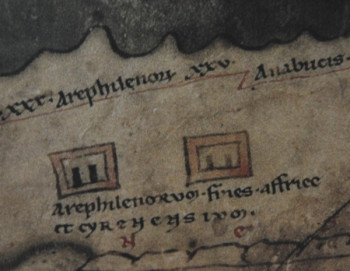 xxx. Arephilenorv xxv. Anabucis.
Arephilenorvm. fines. affrice
et cyrenensivm.